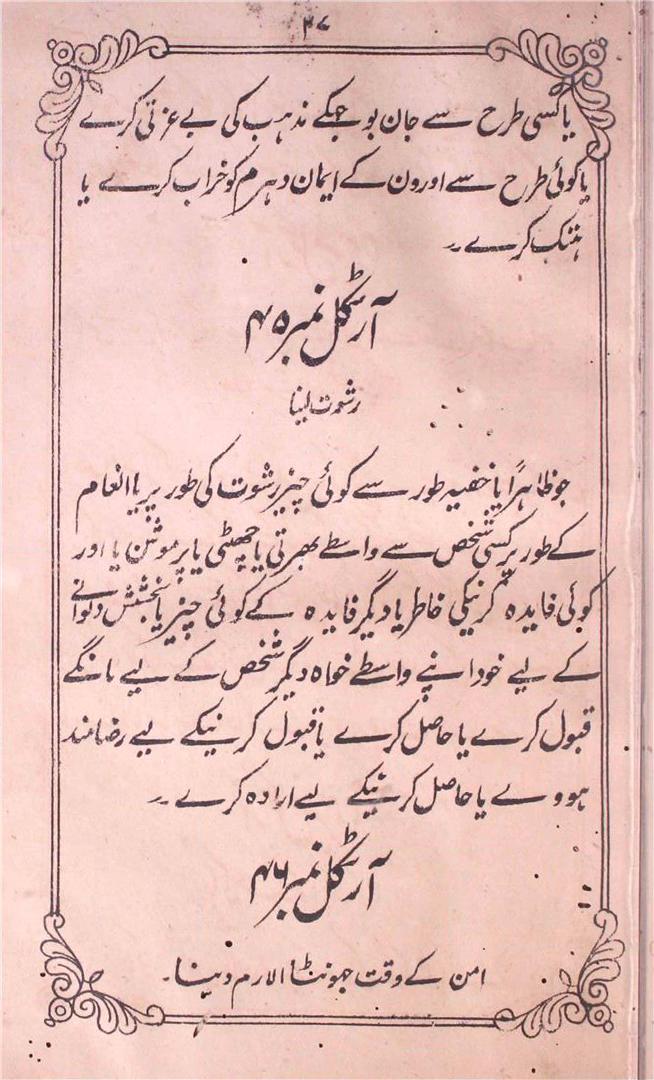 ۳۷
یا کسی طرح سے جان بوجہکے مذہب کی بے عزتی کرے
یا کوئی طرح سے اورون کے ایمان دہرم کو خراب کرے یا
ہتک کرے ۔
آرٹکل نمبر ۴۵
رشوت لینا
جو ظاہراً یا خفیہ طور سے کوئی چیز رشوت کی طور پر یا انعام
کے طور پر کسی شخص سے واسطے بھرتی یا چھٹی یا پرموشن یا اور
کوئی فایدہ کرنیکی خاطر یا دیگر فایدہ کے کوئی چیز یا بخشش دلوانے
کے لیے خود اپنے واسطے خواہ دیگر شخص کے لیے مانگے
قبول کرے یا حاصل کرے یا قبول کرنیکے لیے رضامند
ہووے یا حاصل کرنیکے لیے ارادہ کرے ۔
آرٹکل نمبر ۴۶
امن کے وقت جہونٹا الارم دینا ۔